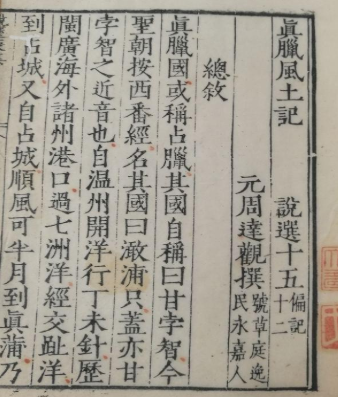 眞臘風土記　說選十五 偏記十二
元周達觀撰 號草庭逸民永嘉人
總敘
眞臘國或稱占臘其國自稱曰甘孛智今
聖朝按西番經名其國曰澉浦只蓋亦甘
孛智之近音也自温州開洋行丁未針歷
閩廣海外諸州港口過七洲洋經交趾洋
到占城又自占城順風可半月到眞蒲乃